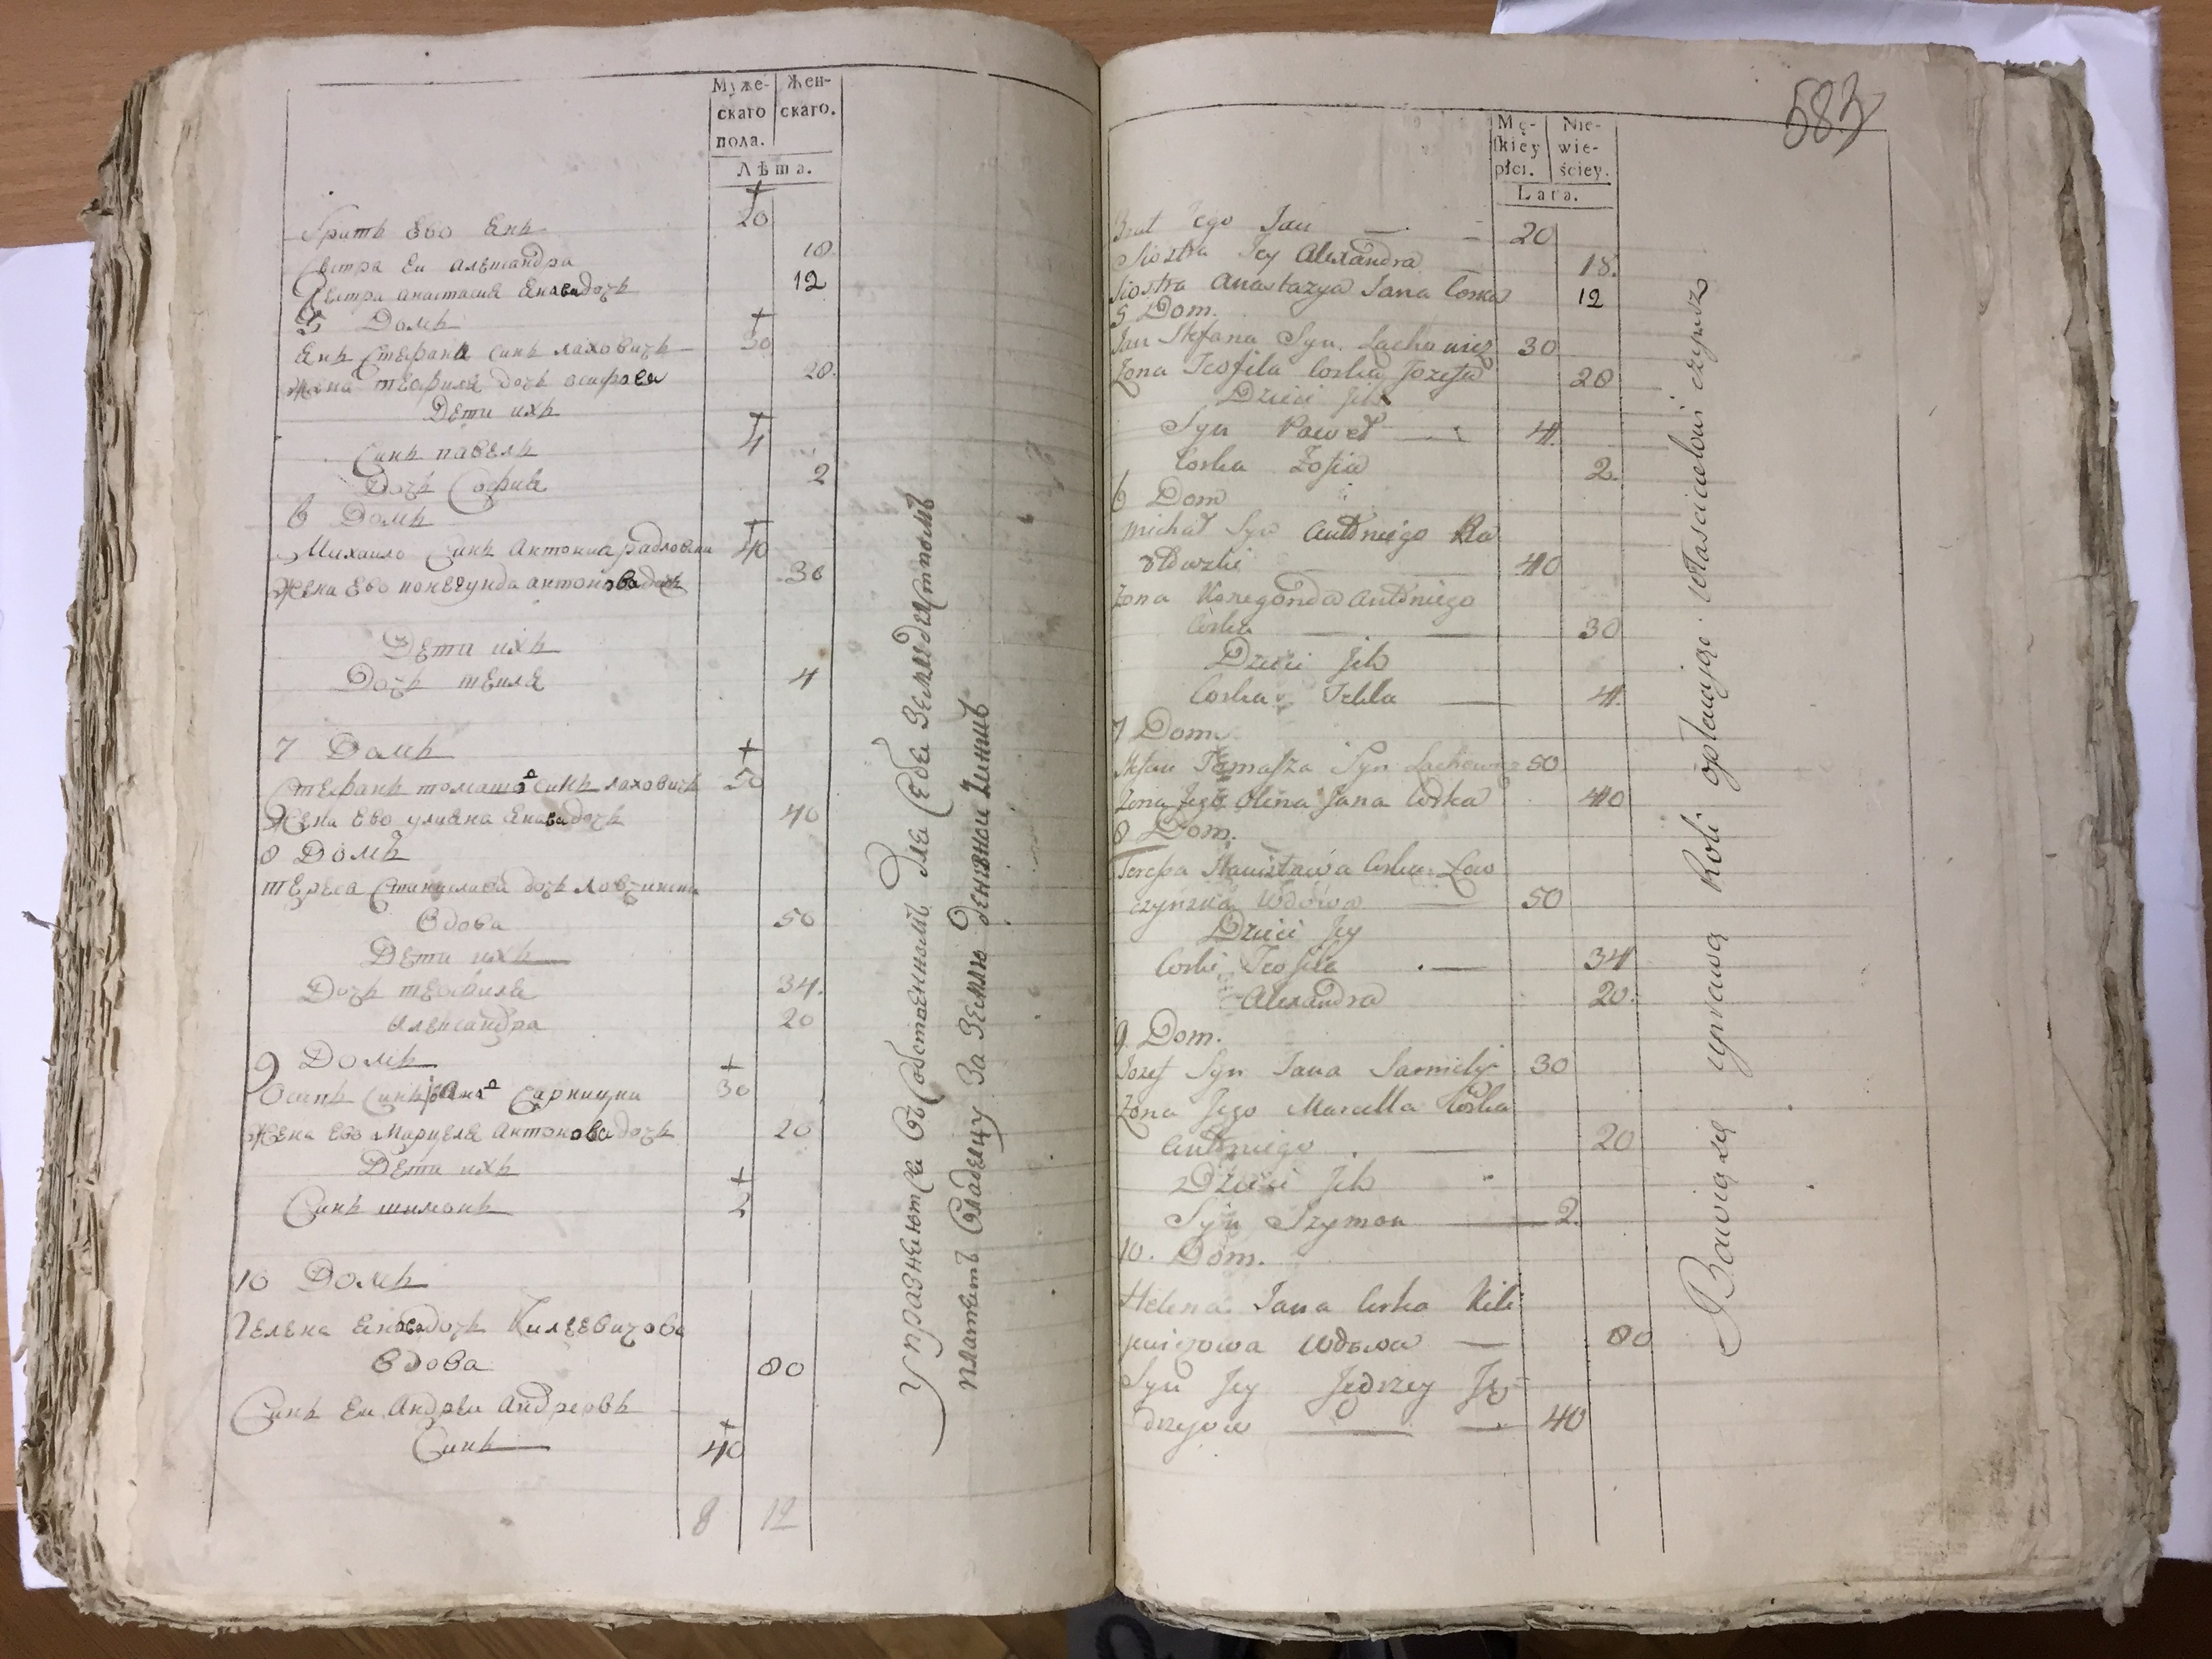 Муже-
скаго
пола.
Жен-
скаго.
Лѣта.
Братъ Ево Янъ 20
Сестра Еи Александра 18
Сестра Анастасия Янова дочь 12
5 Домъ
Янъ Стефана Синъ Лаховичъ 30
Жена Теофиля дочь осифова 20.
Дети ихъ
Синъ павелъ 4
Дочь София 2
6 Домъ
Михаило Синъ Антониа 40
Жена Ево Конегунда антонова дочь 30
Дети ихъ
Дочь текля 4
7 Домъ
Стефанъ томаша Синъ лаховичъ 50
Жена Ево улиана Янова дочь 40
8 Домъ
Тереса Станислава дочь Ловчинска
Вдова 50
Дети ихъ
Дочь теофиля 34.
Александра 20
9 Домъ
Осипъ Синъ Яна Сарницки 30
Жена Ево Марцеля Антонова дочь 20
Дети ихъ
Синъ шимонъ 2
10 Домъ
Гелена Янова дочь Килеевичова
Вдова 80
Синъ Еи Андреи Андреевъ
Синъ 40
8 12
Упразняютса Въ Собственномъ Для Себя Земледелствомъ
платятъ Владелцу За Землю Денежнои Чиншъ
583
Mę-
skiey
płci.
Nie-
wie-
ściey.
Lata.
Brat Jego Jan 20
Siostra Jey Alexandra 18.
Siostra Anastazya Jana Corka 12
5 Dom.
Jan Stefana Syn Lachowicz 30
Zona Teofila Corka Jozefa 20
Dzieci Jch
Syn Paweł 4.
Corka Zofia 2.
6 Dom
Michał Syn Antoniego Ra
dłowski 40
Zona Konegonda Antoniego
Corka 30
Dzieci Jch
Corka Tekla 4.
7 Dom.
Stefan Tomasza Syn Lachowicz 50
Zona Jego Olina Jana Corka 40
8 Dom.
Teressa Stanisława Corka Low
czyńska Wdowa 50
Dzieci Jey
Corki Teofila 34
Alexandra 20.
9 Dom.
Jozef Syn Jana Sarnicki 30
Zona Jego Marcella Corka
Antoniego 20
Dzieci Jch
Syn Szymon 2.
10. Dom.
Helena Jana Corka Kile
jewiczowa Wdowa 80
Syn Jey Jędrzey Ję-
drzejow 40
Bawią się uprawą Roli opłacając Włascicielowi czynsz